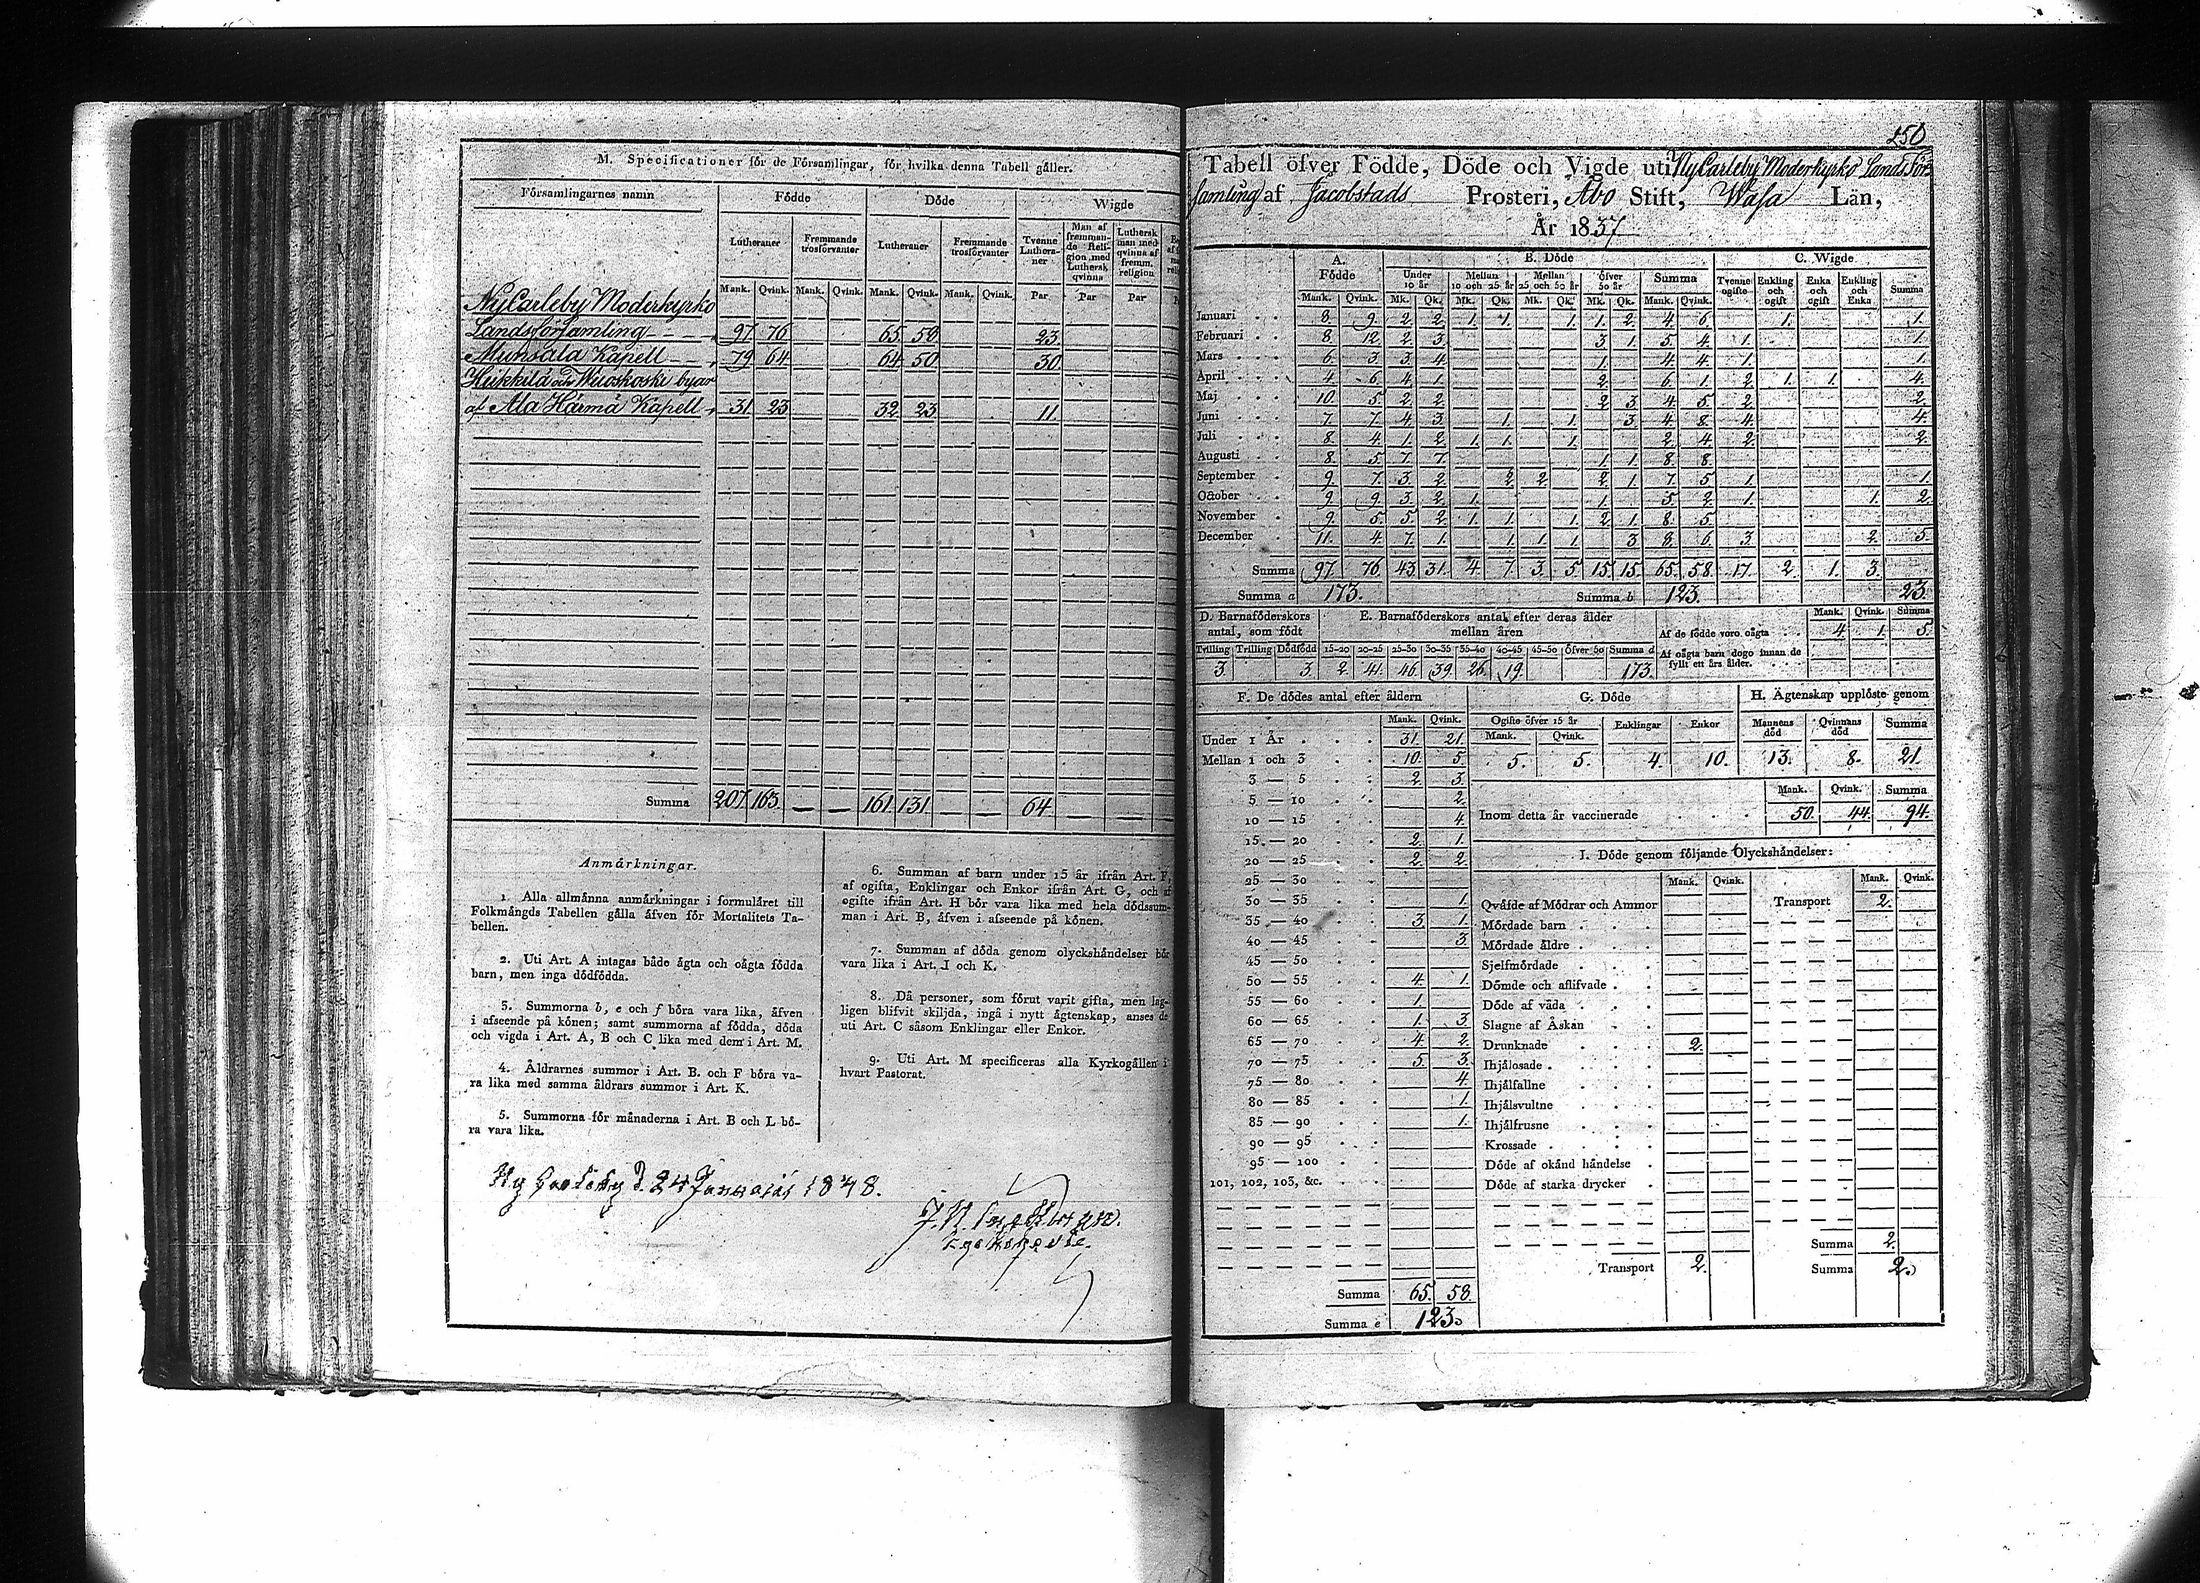 M. Specificationer för de Församlingar, för hvilka denna Tabell gäller.
Församlingarnes namn
Födde
Döde
Wigde
Lutheraner
Fremmande trosförvanter
Lutheraner
Fremmande trosförvanter
Tvenne Lutheraner
Man af fremmande Religion med Luthersk qvinna
Luthersk man med qvinna af fremm. religion
Mank. Qvink. Mank. Qvink. Mank. Qvink. Mank. Qvink. Par Par Par
NyCarleby Moderkyrko
Landsförsamling 97 76 65 58 23
Munsala Kapell 79 64 64 50 30
Heikkilä och Wuoskoski byar
af Ala Härmä Kapell 31 23 32 23 11
Summa 207 163 — — 161 131 — — 64 — —
Anmärkningar.
1. Alla allmänna anmärkningar i formuläret till
Folkmängds Tabellen gälla äfven för Mortalitets Ta-
bellen.
2. Uti Art. A intagas både ägta och oägta födda
barn, men inga dödfödda.
3. Summorna b, e och f böra vara lika, äfven
i afseende på könen; samt summorna af födda, döda
och vigda i Art. A, B och C lika med dem i Art. M.
4. Åldrarnes summor i Art. B. och F böra va-
ra lika med samma åldrars summor i Art. K.
5. Summorna för månaderna i Art. B och L bö-
ra vara lika.
6. Summan af barn under 15 år ifrån Art. F,
af ogifta, Enklingar och Enkor ifrån Art. G, och af
ogifte ifrån Art. H bör vara lika med hela dödssum-
man i Art. B, äfven i afseende på könen.
7. Summan af döda genom olyckshändelser bör
vara lika i Art. I och K.
8. Då personer, som förut varit gifta, men lag-
ligen blifvit skiljda, ingå i nytt ägtenskap, anses de
uti Art. C såsom Enklingar eller Enkor.
9. Uti Art. M specificeras alla Kyrkogällen i
hvart Pastorat.
Ny Carleby d. 24 Januarii 1848.
250
Tabell öfver Födde, Döde och Vigde uti NyCarleby Moderkyrko Lands För
samling af Jacobstads Prosteri, Åbo Stift, Wasa Län,
År 1837
A. Födde
B. Döde
C. Wigde
Under 10 år
Mellan 10 och 25 år
Mellan 25 och 50 år
Öfver 50 år
Summa
Tvenne ogifte
Enkling och ogift
Enka och ogift
Enkling och Enka
Summa
Mank. Qvink. Mk. Qk. Mk. Qk. Mk. Qk. Mk. Qk. Mank. Qvink.
Januari 8 9 2 2 1 1 1 1 2 4 6 1 1
Februari 8 12 2 3 3 1 5 4 1 1
Mars 6 3 3 4 1 4 4 1 1
April 4 6 4 1 2 6 1 2 1 1 4
Maj 10 5 2 2 2 3 4 5 2 2
Juni 7 7 4 3 1 1 3 4 8 4 4
Juli 8 4 1 2 1 1 1 2 4 2 2
Augusti 8 5 7 7 1 1 8 8
September 9 7 3 2 2 2 2 1 7 5 1 1
October 9 9 3 2 1 1 5 2 1 1 2
November 9 5 5 2 1 1 1 2 1 8 5
December 11 4 7 1 1 1 1 3 8 6 3 2 5
Summa 97 76 43 31 4 7 3 5 15 15 65 58 17 2 1 3
Summa a 173. Summa b 123. 23
D. Barnaföderskors antal, som födt
E. Barnaföderskors antal efter deras ålder mellan åren
Mank. Qvink. Summa
Af de födde voro oägta 4 1 5
Tvilling Trilling Dödfödd 15-20 20-25 25-30 30-35 35-40 40-45 45-50 öfver 50 Summa d
3 3 2 41 46 39 26 19 173
Af oägta barn dogo innan de
fyllt ett års ålder.
F. De dödes antal efter åldern
Mank. Qvink.
Under 1 År 31 21
Mellan 1 och 3 10 5
3 — 5 2 3
5 — 10 2
10 — 15 4
15 — 20 2 1
20 — 25 2 2
25 — 30
30 — 35 1
35 — 40 3 1
40 — 45 3
45 — 50
50 — 55 4 1
55 — 60 1
60 — 65 1 3
65 — 70 4 2
70 — 75 5 3
75 — 80 4
80 — 85 1
85 — 90 1
90 — 95
95 — 100
101, 102, 103, &c.
Summa 65 58
Summa e 123
G. Döde
Ogifte öfver 15 år
Enklingar
Enkor
Mank. Qvink.
5 5 4 10
H. Ägtenskap upplöste genom
Mannens död
Qvinnans död
Summa
13 8 21
Mank. Qvink. Summa
Inom detta år vaccinerade 50 44 94
I. Döde genom följande Olyckshändelser:
Mank. Qvink.
Mank. Qvink.
Qväfde af Mödrar och Ammor
Mördade barn
Mördade äldre
Sjelfmördade
Dömde och aflifvade
Döde af våda
Slagne af Åskan
Drunknade 2
Ihjälosade
Ihjälfallne
Ihjälsvultne
Ihjälfrusne
Krossade
Döde af okänd händelse
Döde af starka drycker
Transport 2
Transport 2
Summa 2
Summa 2